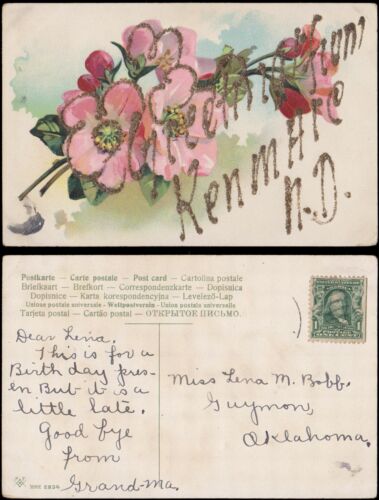 from
Kenmare
N.D.
Postkarte – Carte postale – Post card – Cartolina postale
Briefkaart – Brefkort – Correspondenzkarte – Dopisnice
Dopisnice – Karta korespondencyjna – Levelező-Lap
Union postale universelle – Weltpostverein – Unione postale universale
Tarjeta postal – Cartão postal – ОТКРЫТОЕ ПИСЬМО.
Dear Lena,
This is for a
Birthday pres-
en But it is a
little late.
Good bye
from
Grand-Ma.
Miss Lena M. Bobb.
Guymon,
Oklahoma.
1 1